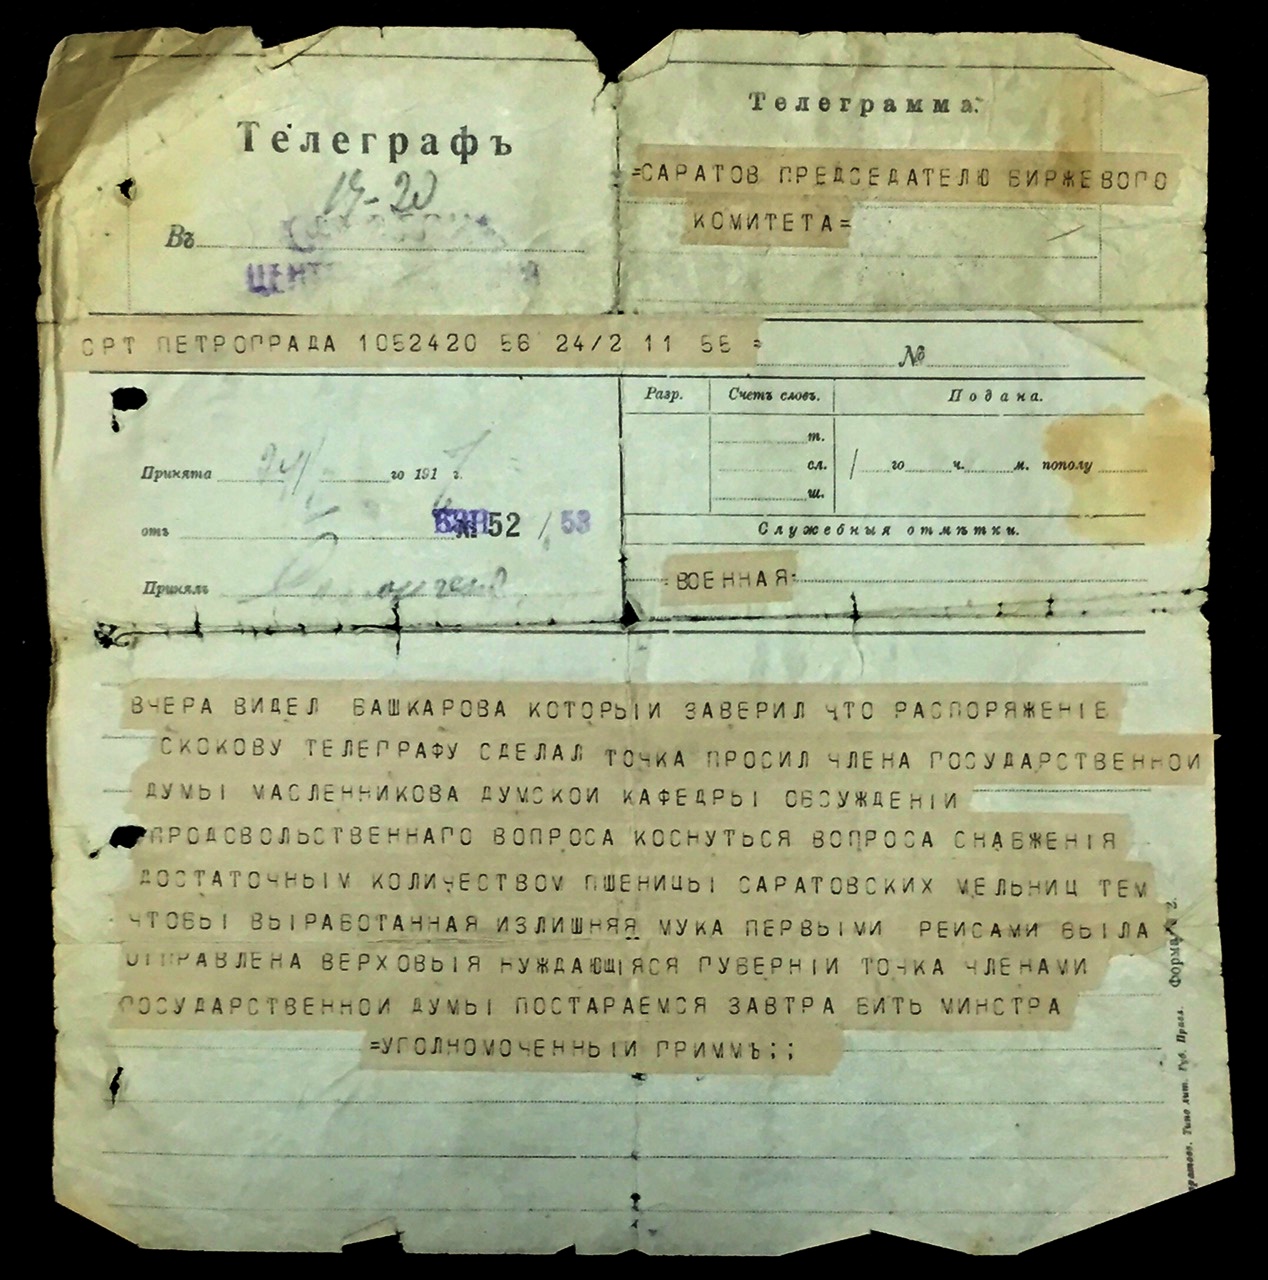 Телеграфъ
19-20
Въ
Телеграмма.
=САРАТОВ ПРЕДСЕДАТЕЛЮ БИРЖЕВОГО
КОМИТЕТА=
СРТ ПЕТРОГРАДА 1052420 56 24/2 11 55 =
№
Разр.
Счетъ словъ.
Подана.
т.
сл.
ш.
го ч. м. пополу
Принята 24/ го 1917 г.
отъ № 52 / 53
Принялъ
Служебныя отмѣтки.
=ВОЕННАЯ=
ВЧЕРА ВИДЕЛ БАШКАРОВА КОТОРЫИ ЗАВЕРИЛ ЧТО РАСПОРЯЖЕНIЕ
СКОКОВУ ТЕЛЕГРАФУ СДЕЛАЛ ТОЧКА ПРОСИЛ ЧЛЕНА ГОСУДАРСТВЕННОИ
ДУМЫ МАСЛЕННИКОВА ДУМСКОИ КАФЕДРЫ ОБСУЖДЕНIИ
ПРОДОВОЛЬСТВЕННАГО ВОПРОСА КОСНУТЬСЯ ВОПРОСА СНАБЖЕНIЯ
ДОСТАТОЧНЫМ КОЛИЧЕСТВОМ ПШЕНИЦЫ САРАТОВСКИХ МЕЛЬНИЦ ТЕМ
ЧТОБЫ ВЫРАБОТАННАЯ ИЗЛИШНЯЯ МУКА ПЕРВЫМИ РЕИСАМИ БЫЛА
ОТПРАВЛЕНА ВЕРХОВЫЯ НУЖДАЮЩIЯСЯ ГУБЕРНIИ ТОЧКА ЧЛЕНАМИ
ГОСУДАРСТВЕННОИ ДУМЫ ПОСТАРАЕМСЯ ЗАВТРА БИТЬ МИНСТРА
=УПОЛНОМОЧЕННЫИ ГРИММЪ;;
Форма № 2.
Типо лит. Губ. Правл.